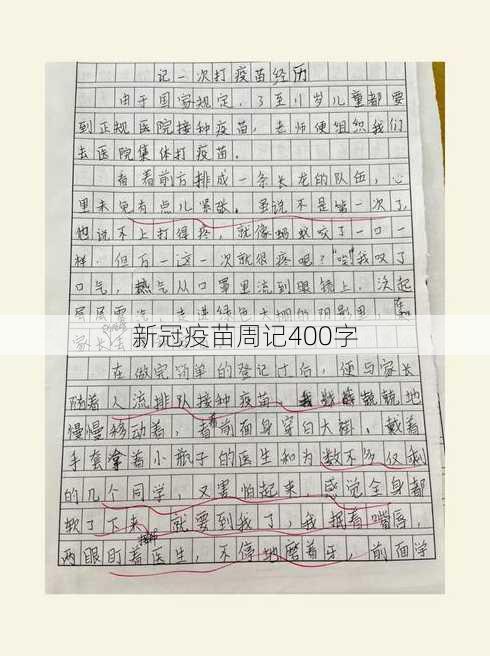 记一次打疫苗经历
由于国家规定，3至11岁儿童都要
到正规医院接种疫苗，老师便组织我们
去医院集体打疫苗。
看着前方排成一条长龙的队伍，心
里未免有点儿紧张。虽说不是第一次了，
也说不上打得疼，就像蚂蚁咬了一口一
样。但万一这一次就很疼呢？"唉"我叹了
口气，热气从口罩里流到眼镜上，泛起
层层雾汽。走进绿色大棚的阴影里，
家长
新冠疫苗周记400字
在做完简单的登记过后，便与家长
随着人流排队接种疫苗，兢兢地
慢慢移动着，看着前面身穿白大褂，戴着
手套拿着小瓶子的医生和为数不多仅剩
的几个同学，又害怕起来，感觉全身都
软了下来，就要到我了，我抿着嘴唇，
两眼盯着医生，不停地磨着牙，前面学